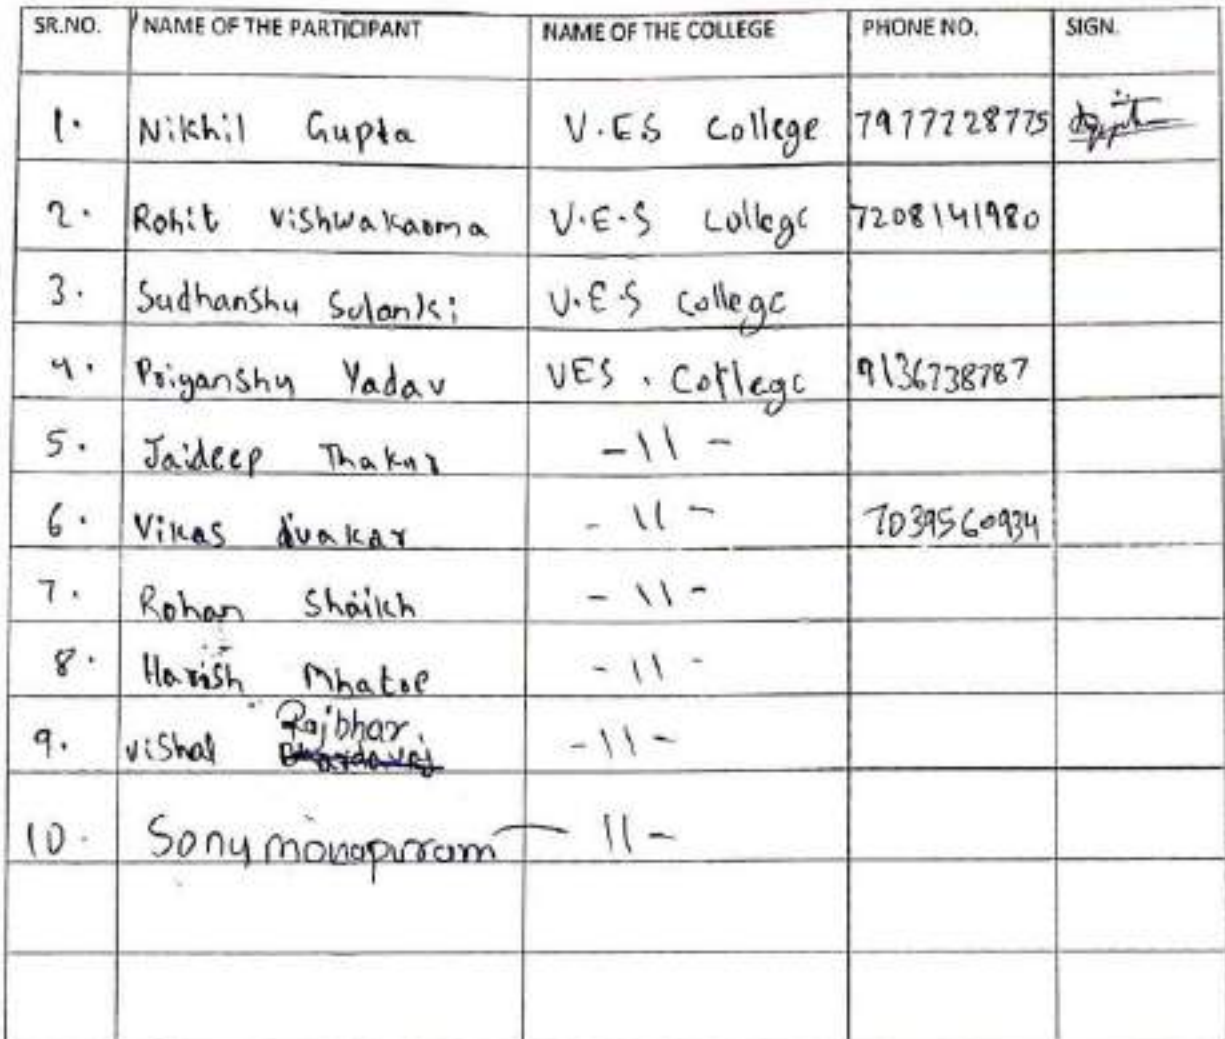 SR.NO. NAME OF THE PARTICIPANT NAME OF THE COLLEGE PHONE NO. SIGN.
1. Nikhil Gupta V.ES College 7977728775
2. Rohit Vishwakarma V.E.S College 7208141980
3. Sudhanshu Solanki V.E.S College
4. Priyanshu Yadav VES. College 9136738787
5. Jaideep Thakur -11-
6. Vikas divakar -11- 7039560934
7. Rohan Shaikh -11-
8. Harish Mhatre -11-
Rajbhar.
9. Vishal -11-
10. Sony monapuram -11-